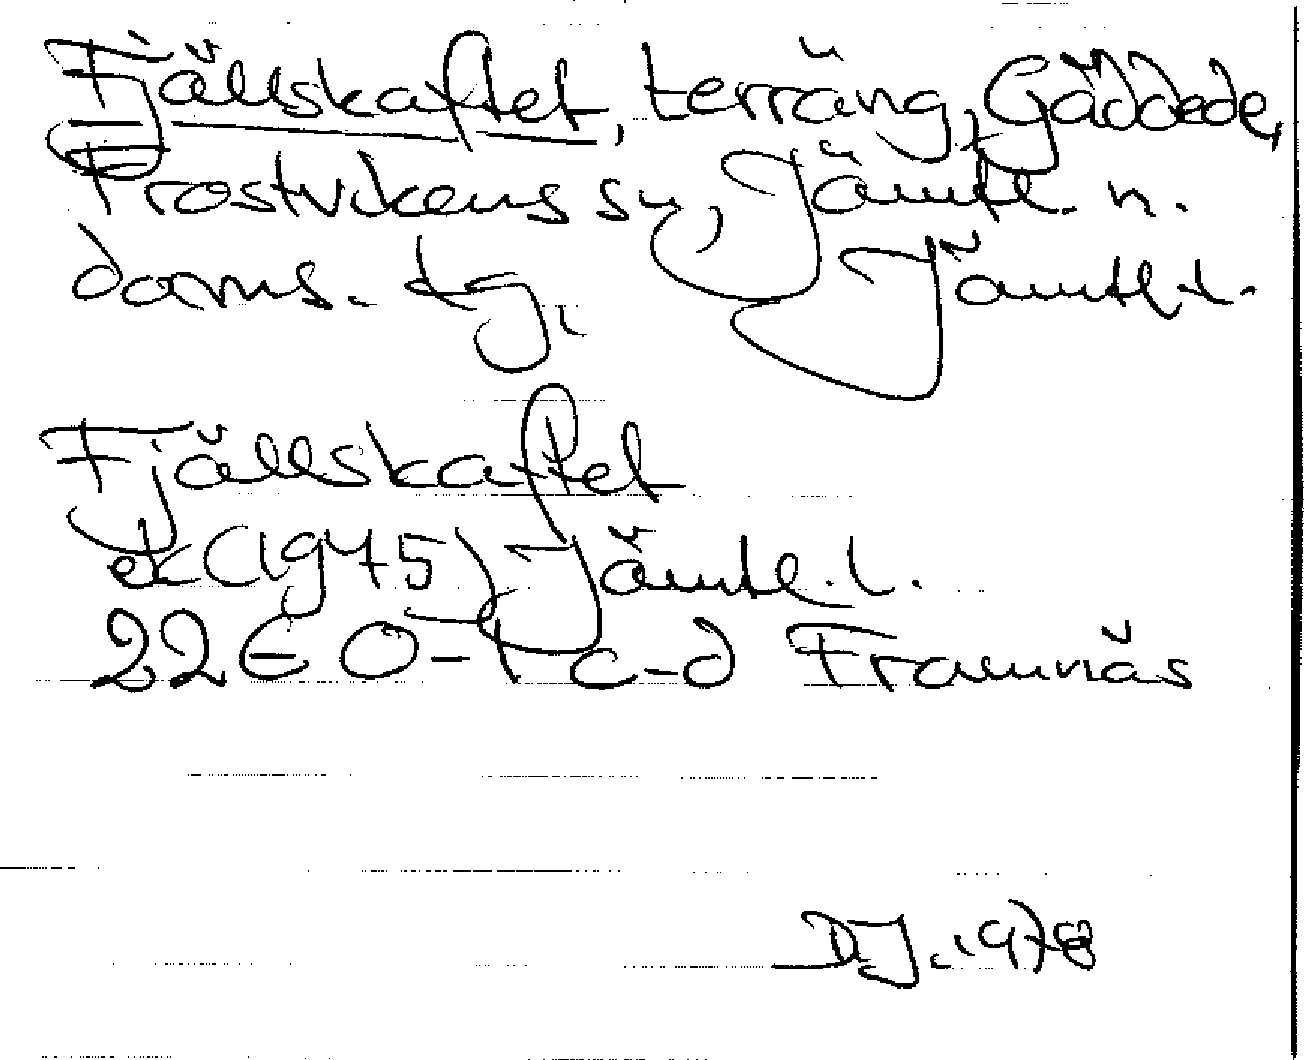 Fjällskaftet, terräng, Gäddede,
Frostvikens sn, Jämtl. n.
doms. tg, Jämtl. l.
Fjällskaftet
ek (1975) Jämtl. l.
22E 0-1 c-d Framnäs
D.J. 1978